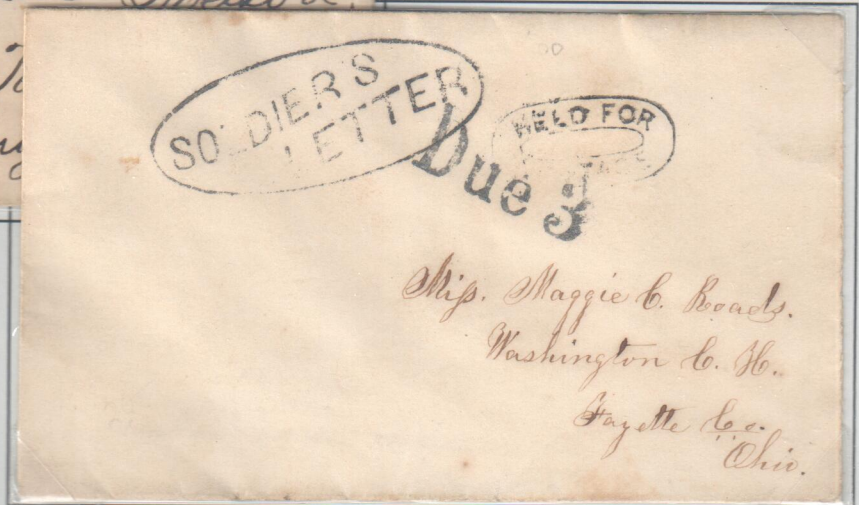 SOLDIER'S
LETTER
HELD FOR
Due 3
Miss. Maggie C. Roads.
Washington C. H.
Fayette Co.
Ohio.